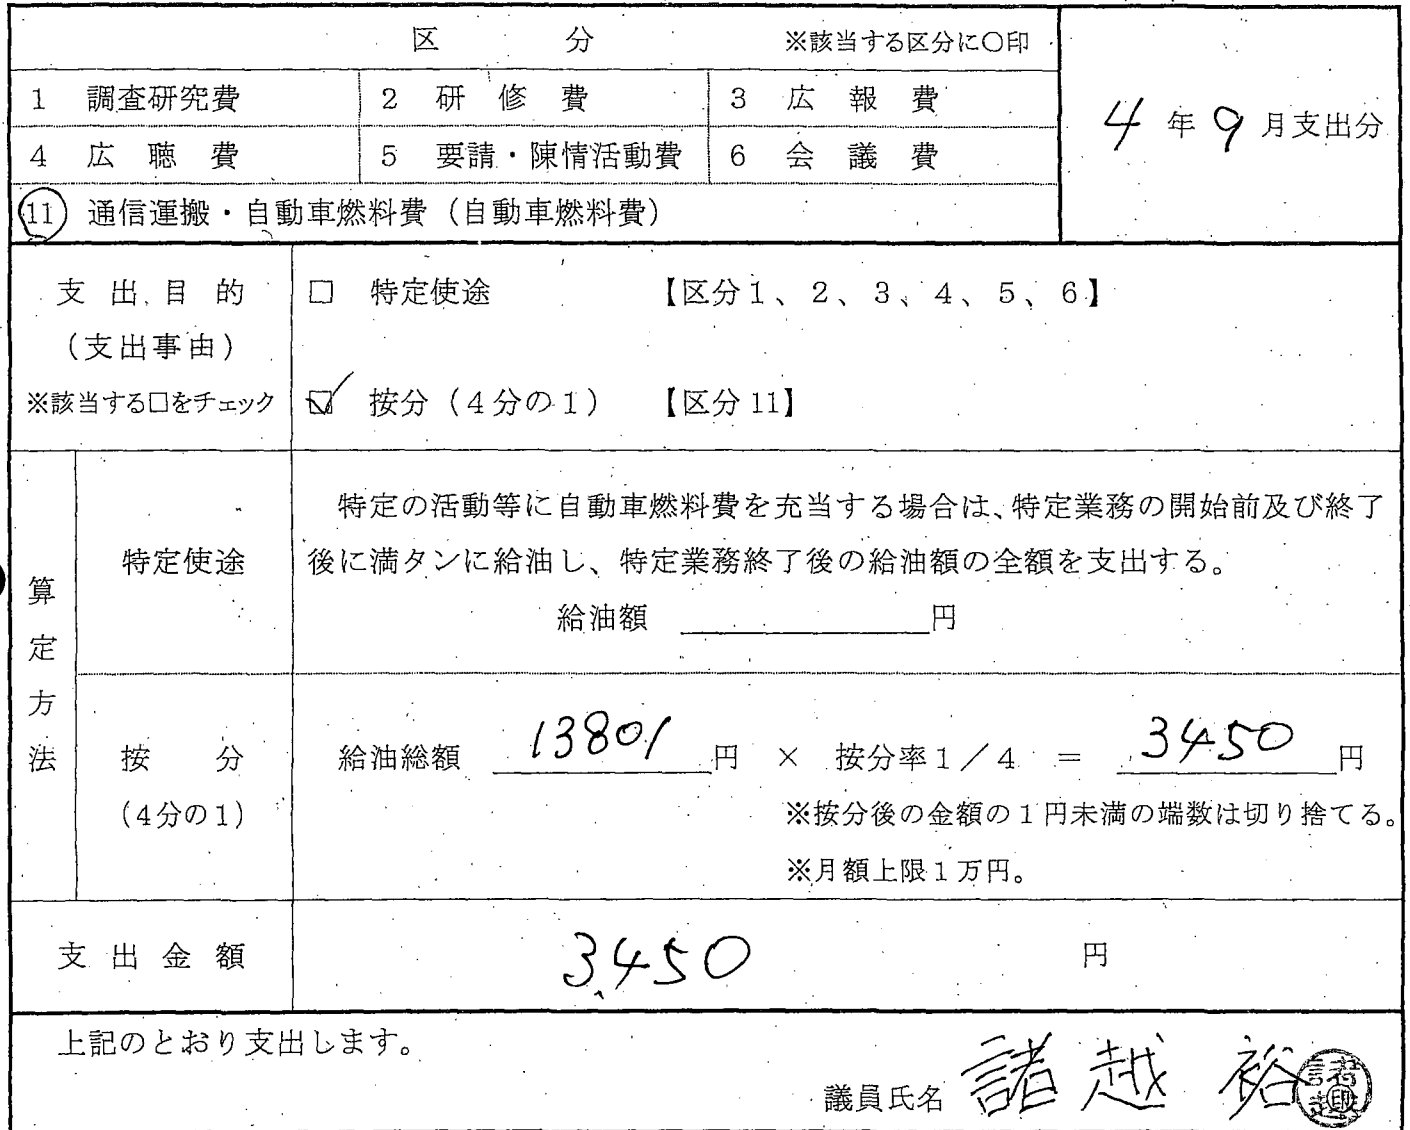 区　分　※該当する区分に○印
4年9月支出分
1　調査研究費　2　研修費　3　広報費
4　広聴費　5　要請・陳情活動費　6　会議費
11　通信運搬・自動車燃料費（自動車燃料費）
支出目的　□　特定使途　【区分1、2、3、4、5、6】
（支出事由）
※該当する□をチェック　☑　按分（4分の1）　【区分11】
算定方法
特定使途
特定の活動等に自動車燃料費を充当する場合は、特定業務の開始前及び終了
後に満タンに給油し、特定業務終了後の給油額の全額を支出する。
給油額　円
按分
（4分の1）
給油総額　13801　円　×　按分率1／4　＝　3450　円
※按分後の金額の1円未満の端数は切り捨てる。
※月額上限1万円。
支出金額　3,450　円
上記のとおり支出します。
議員氏名　諸越　裕
諸越印